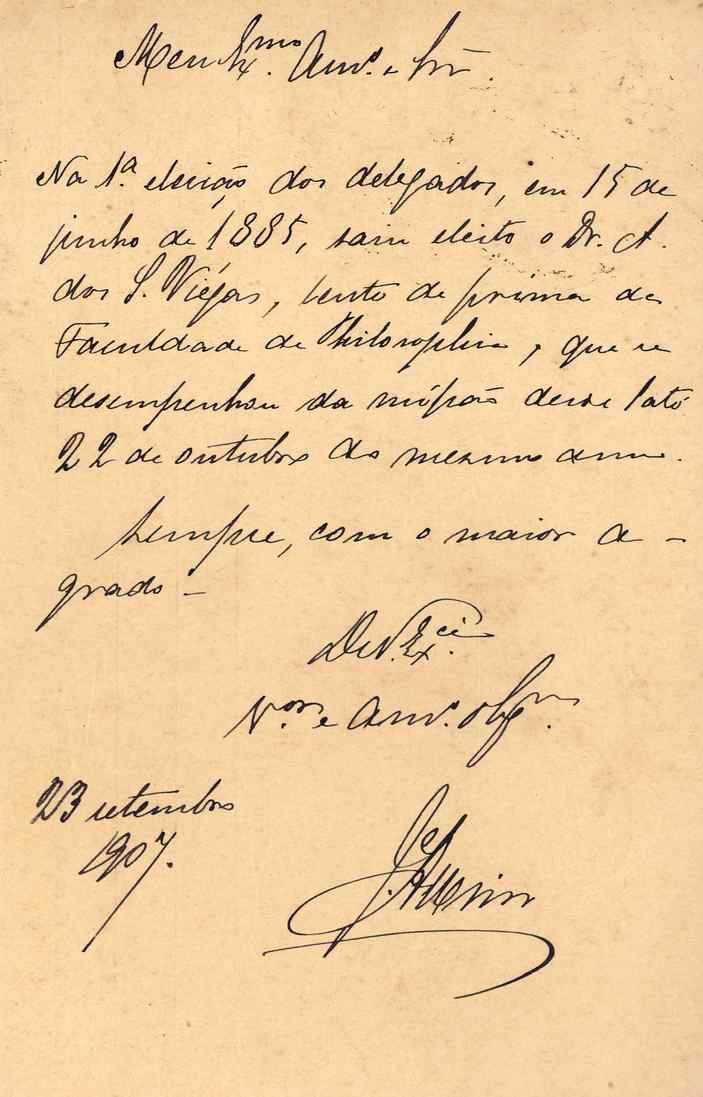 Meu Ex.mo Am.o e Sr.
Na 1.ª eleição dos delegados, em 15 de
junho de 1885, saiu eleito o Dr. A.
dos S. Viégas, lente de prima da
Faculdade de Philosophia, que se
desempenhou da missão desde 1 até
22 de outubro do mesmo anno.
Sempre, com o maior a-
grado –
De V. Ex.cia
V.or e Am.o obg.mo
23 setembro
1907.